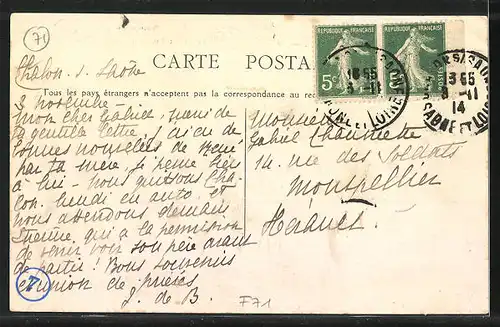 71
CARTE POSTA
Tous les pays étrangers n'acceptent pas la correspondance au
RÉPUBLIQUE FRANÇAISE
RÉPUBLIQUE FRANÇAISE
5c
16 55
3 -11
ET LOIRE
16 55
3 -11
14
SAÔNE ET LOIRE
Chalon s. Saône
3 novembre -
Mon cher Gabriel, merci de
ta gentille lettre, j'ai eu de
bonnes nouvelles de René,
par ta mère, je pense très
à lui - nous quittons Cha-
lon lundi en auto, et
nous attendons demain
Etienne, qui a la permission
de venir voir son père avant
de partir ! Bons souvenirs
et union de prières
J. de B.
Monsieur
Gabriel
14. rue des Soldats
Montpellier
Hérault
F71